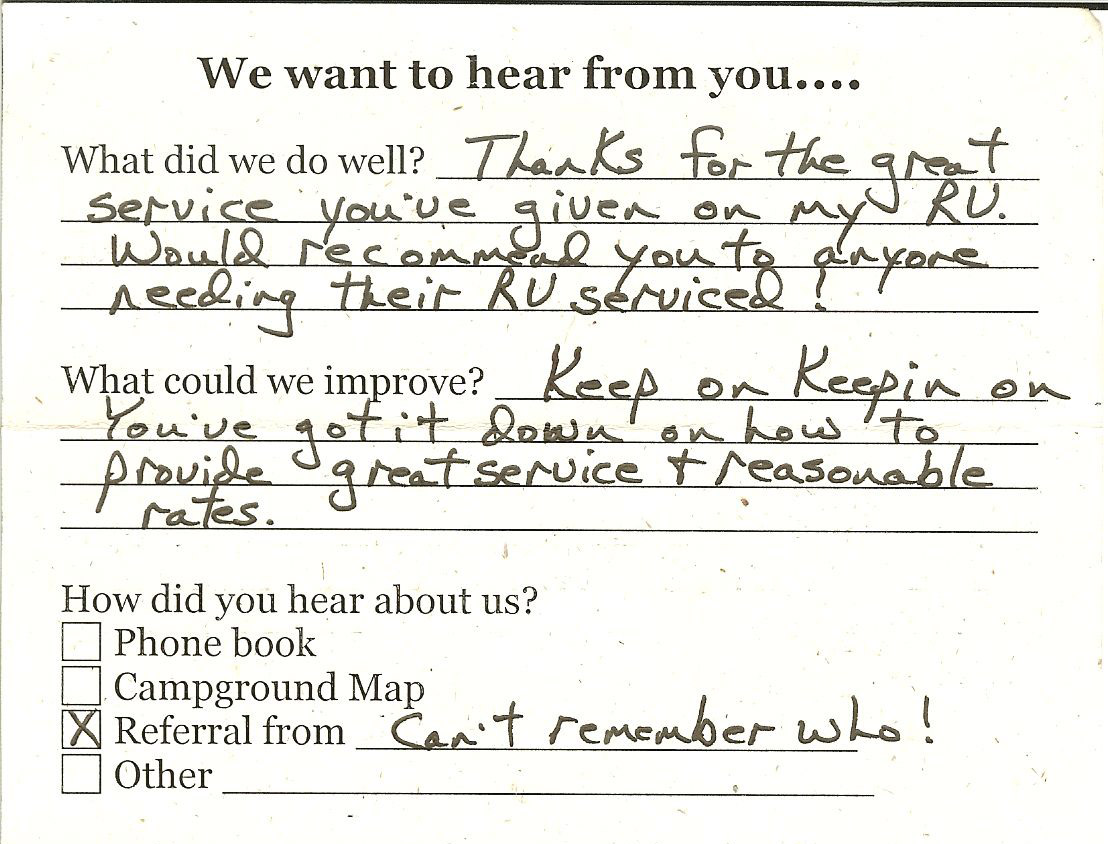 We want to hear from you....
What did we do well? Thanks for the great
service you've given on my RV.
Would recommend you to anyone
needing their RV serviced!
What could we improve? Keep on Keepin on
You've got it down on how to
provide great service + reasonable
rates.
How did you hear about us?
Phone book
Campground Map
X Referral from Can't remember who!
Other